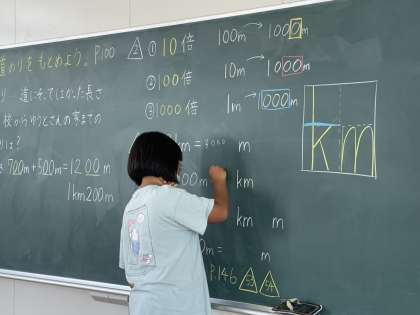 道のりをもとめよう。 P.100
道にそってはかった長さ
校からゆうとさんの家までの
は?
700m+500m=1200m
1km200m
① 10倍
② 100倍
③ 1000倍
m = 4000 m
00m km
km m
0m = m
P.146
100m → 1000
10m → 1000
1m → 1000
km